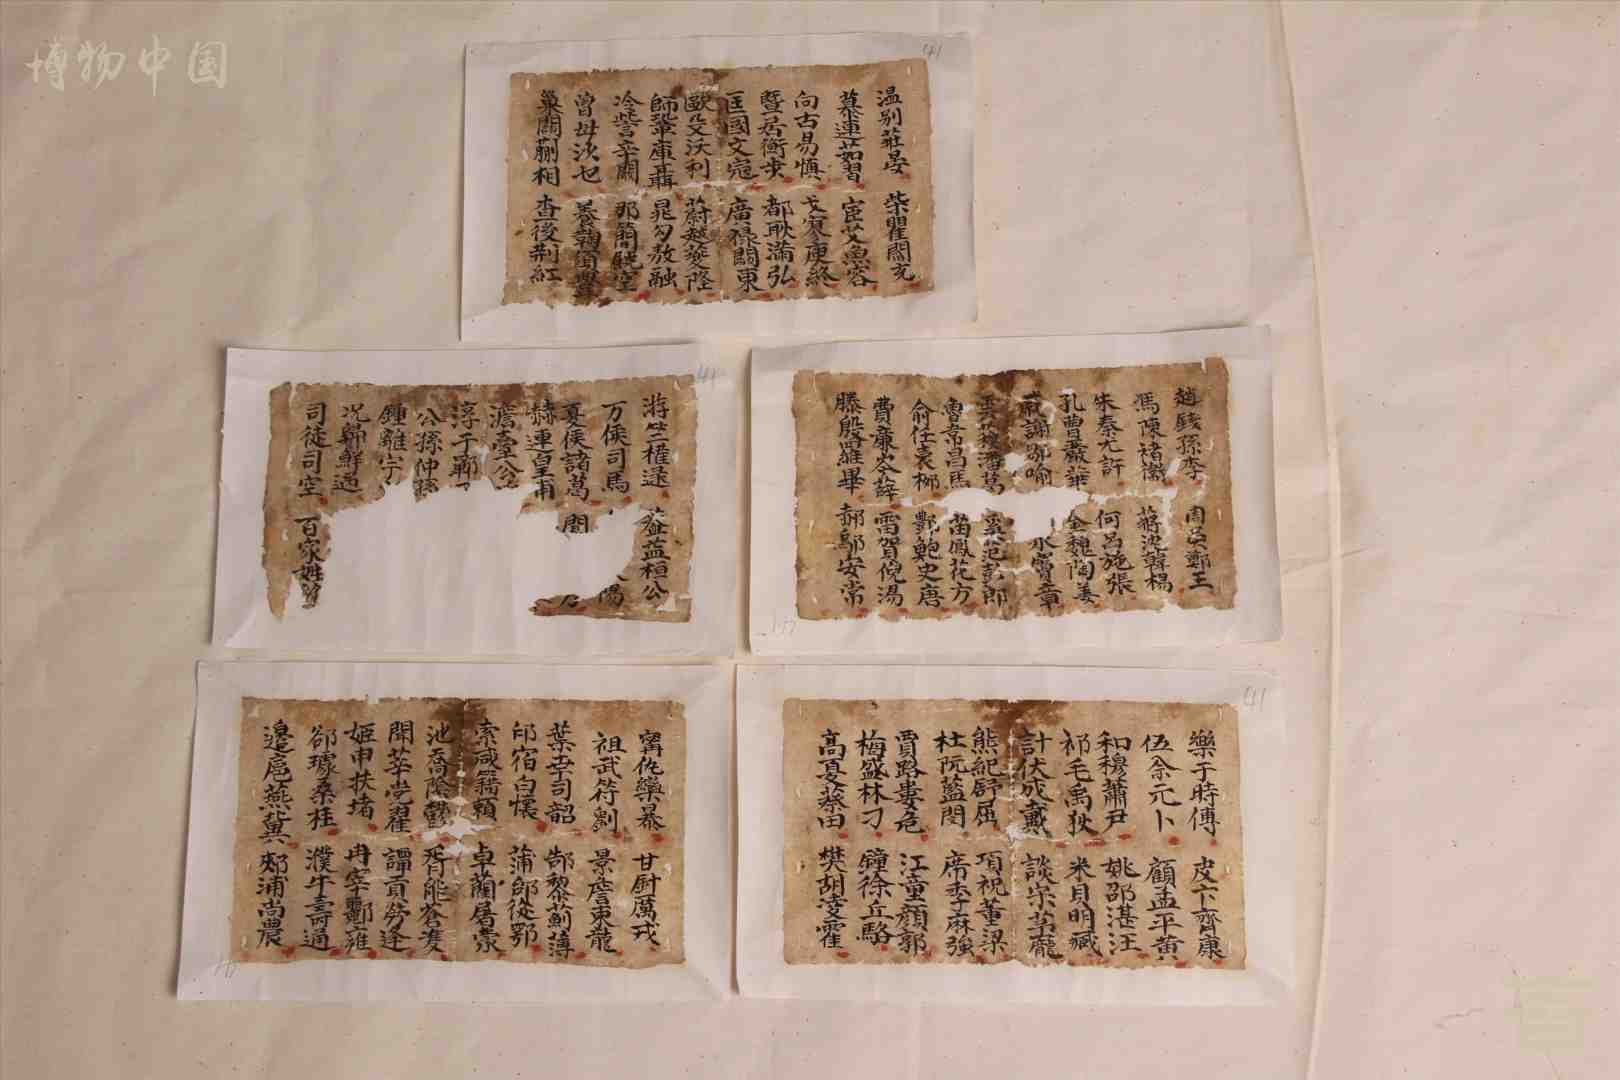 博物中国
趙錢孫李 周吳鄭王
馮陳褚衛 蔣沈韓楊
朱秦尤許 何呂施張
孔曹嚴華 金魏陶姜
戚謝鄒喻 水竇章
雲蘇潘葛 奚范彭郎
魯韋昌馬 苗鳳花方
俞任袁柳 酆鮑史唐
費廉岑薛 雷賀倪湯
滕殷羅畢 郝鄔安常
樂于時傅 皮卞齊康
伍余元卜 顧孟平黃
和穆蕭尹 姚邵湛汪
祁毛禹狄 米貝明臧
計伏成戴 談宋茅龐
熊紀舒屈 項祝董梁
杜阮藍閔 席季麻強
賈路婁危 江童顏郭
梅盛林刁 鐘徐丘駱
高夏蔡田 樊胡凌霍
甯仇欒暴 甘鈄厲戎
祖武符劉 景詹束龍
葉幸司韶 郜黎薊薄
印宿白懷 蒲邰從鄂
索咸籍賴 卓藺屠蒙
池喬陰鬱 胥能蒼雙
聞莘党翟 譚貢勞逄
姬申扶堵 冉宰酈雍
郤璩桑桂 濮牛壽通
邊扈燕冀 郟浦尚農
温別莊晏 柴瞿閻充
慕連茹習 宦艾魚容
向古易慎 戈寥庾終
暨居衡步 都耿滿弘
匡國文寇 廣祿闕東
歐殳沃利 蔚越夔隆
師鞏庫聶 晁勾敖融
冷訾辛闞 那簡饒空
曾毋沙乜 養鞠須豐
巢關蒯相 查後荊紅
游竺權逯 益桓公
万俟司馬 陽
夏侯諸葛 聞
赫連皇甫
澹臺公
淳于鄆
公孫仲孫
鍾離宇
况歸鮮
司徒司空 百家姓
41
41
41
41
41